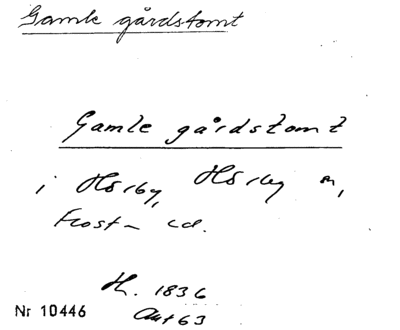 Gamle gårdstomt
Gamle gårdstomt
i Hörby, Hörby sn,
Frosta hd.
H. 1836
Nr 10446
Aut 63